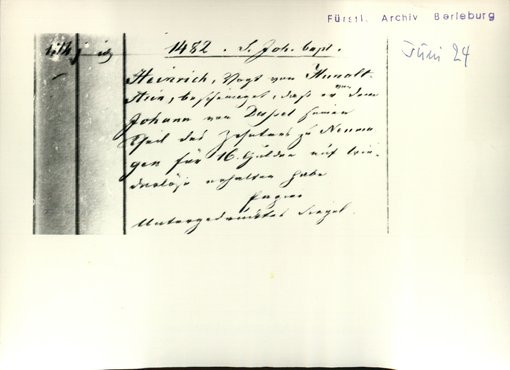 Fürstl. Archiv Berleburg
Juni 24
1482. S. Joh. bapt.
Heinrich, Vogt von Hunolt-
stein, bescheinigt, daß er von dem
Johann von Dussel seinen
Theil des Zehntens zu Neuma-
gen für 16 Gulden auf wie-
derlöse erhalten habe
Papier
Untergedrücktes Siegel.